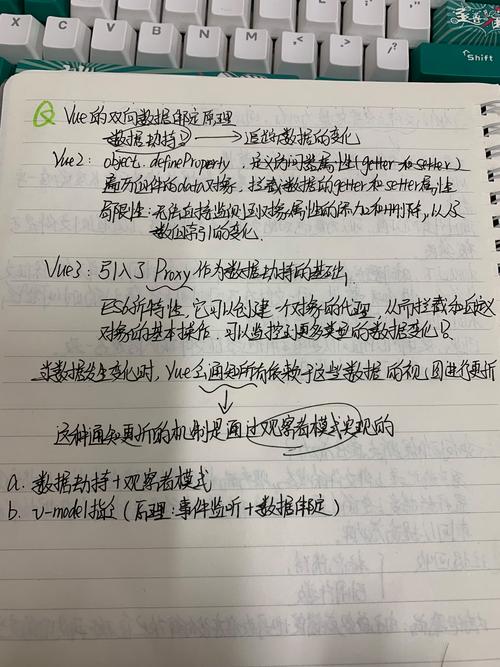 Z X C V B N M < >
Shift
Q Vue的双向数据绑定原理
数据劫持 → 追踪数据的变化
Vue2: object.defineProperty,定义为问器属性(getter和setter)
遍历组件的data对象,拦截数据的getter和setter属性
局限性:无法直接监视到对象属性的添加和删除,以及
数组索引的变化.
Vue3: 引入了Proxy作为数据劫持的基础,
ES6新特性,它可以创建一个对象的代理,从而拦截和自定义
对象的基本操作.可以监控到更多类型的数据变化
当数据发生变化时,Vue会通知所有依赖于这些数据的视图进行更新
↓
这种通知更新的机制是通过观察者模式实现的
a. 数据劫持+观察者模式
b. v-model指令(原理:事件监听+数据绑定)